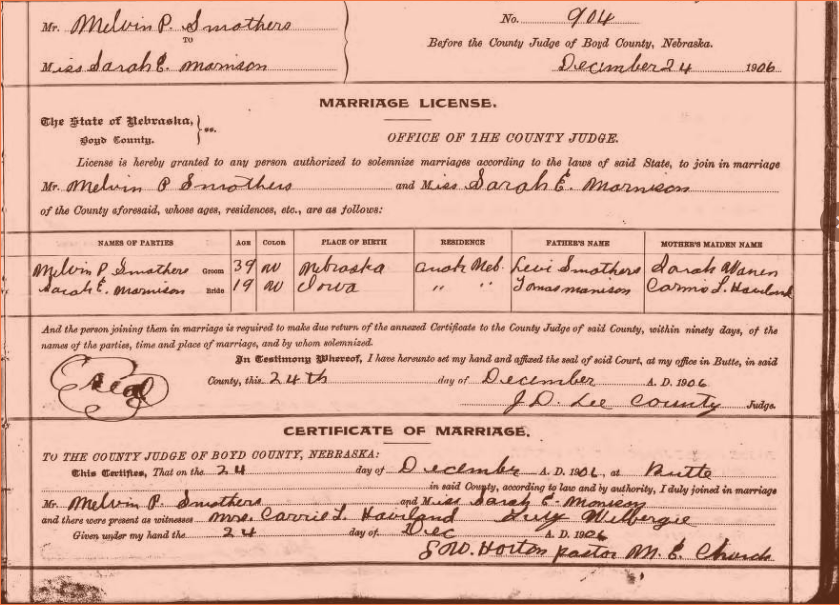 Mr. Melvin P. Smothers
TO
Miss Sarah E. Marnison
No. 904
Before the County Judge of Boyd County, Nebraska.
December 24 1906
MARRIAGE LICENSE.
The State of Nebraska, } ss.
Boyd County.
OFFICE OF THE COUNTY JUDGE.
License is hereby granted to any person authorized to solemnize marriages according to the laws of said State, to join in marriage
Mr. Melvin P Smothers and Miss Sarah E. Marnison
of the County aforesaid, whose ages, residences, etc., are as follows:
NAMES OF PARTIES AGE COLOR PLACE OF BIRTH RESIDENCE FATHER'S NAME MOTHER'S MAIDEN NAME
Melvin P. Smothers Groom 39 W Nebraska Neb. Levi Smothers Sarah
Sarah E. Marnison Bride 19 W Iowa " " Carrie L. Haviland
And the person joining them in marriage is required to make due return of the annexed Certificate to the County Judge of said County, within ninety days, of the
names of the parties, time and place of marriage, and by whom solemnized.
In Testimony Whereof, I have hereunto set my hand and affixed the seal of said Court, at my office in Butte, in said
Seal
County, this 24th day of December A. D. 1906
J. D. Lee County Judge.
CERTIFICATE OF MARRIAGE.
TO THE COUNTY JUDGE OF BOYD COUNTY, NEBRASKA:
This Certifies, That on the 24 day of December A. D. 1906, at Butte
in said County, according to law and by authority, I duly joined in marriage
Mr. Melvin P. Smothers and Miss Sarah E. Monison
and there were present as witnesses Mrs. Carrie L. Haviland
Given under my hand the 24 day of Dec A. D. 1906
Horton pastor M. E. Church